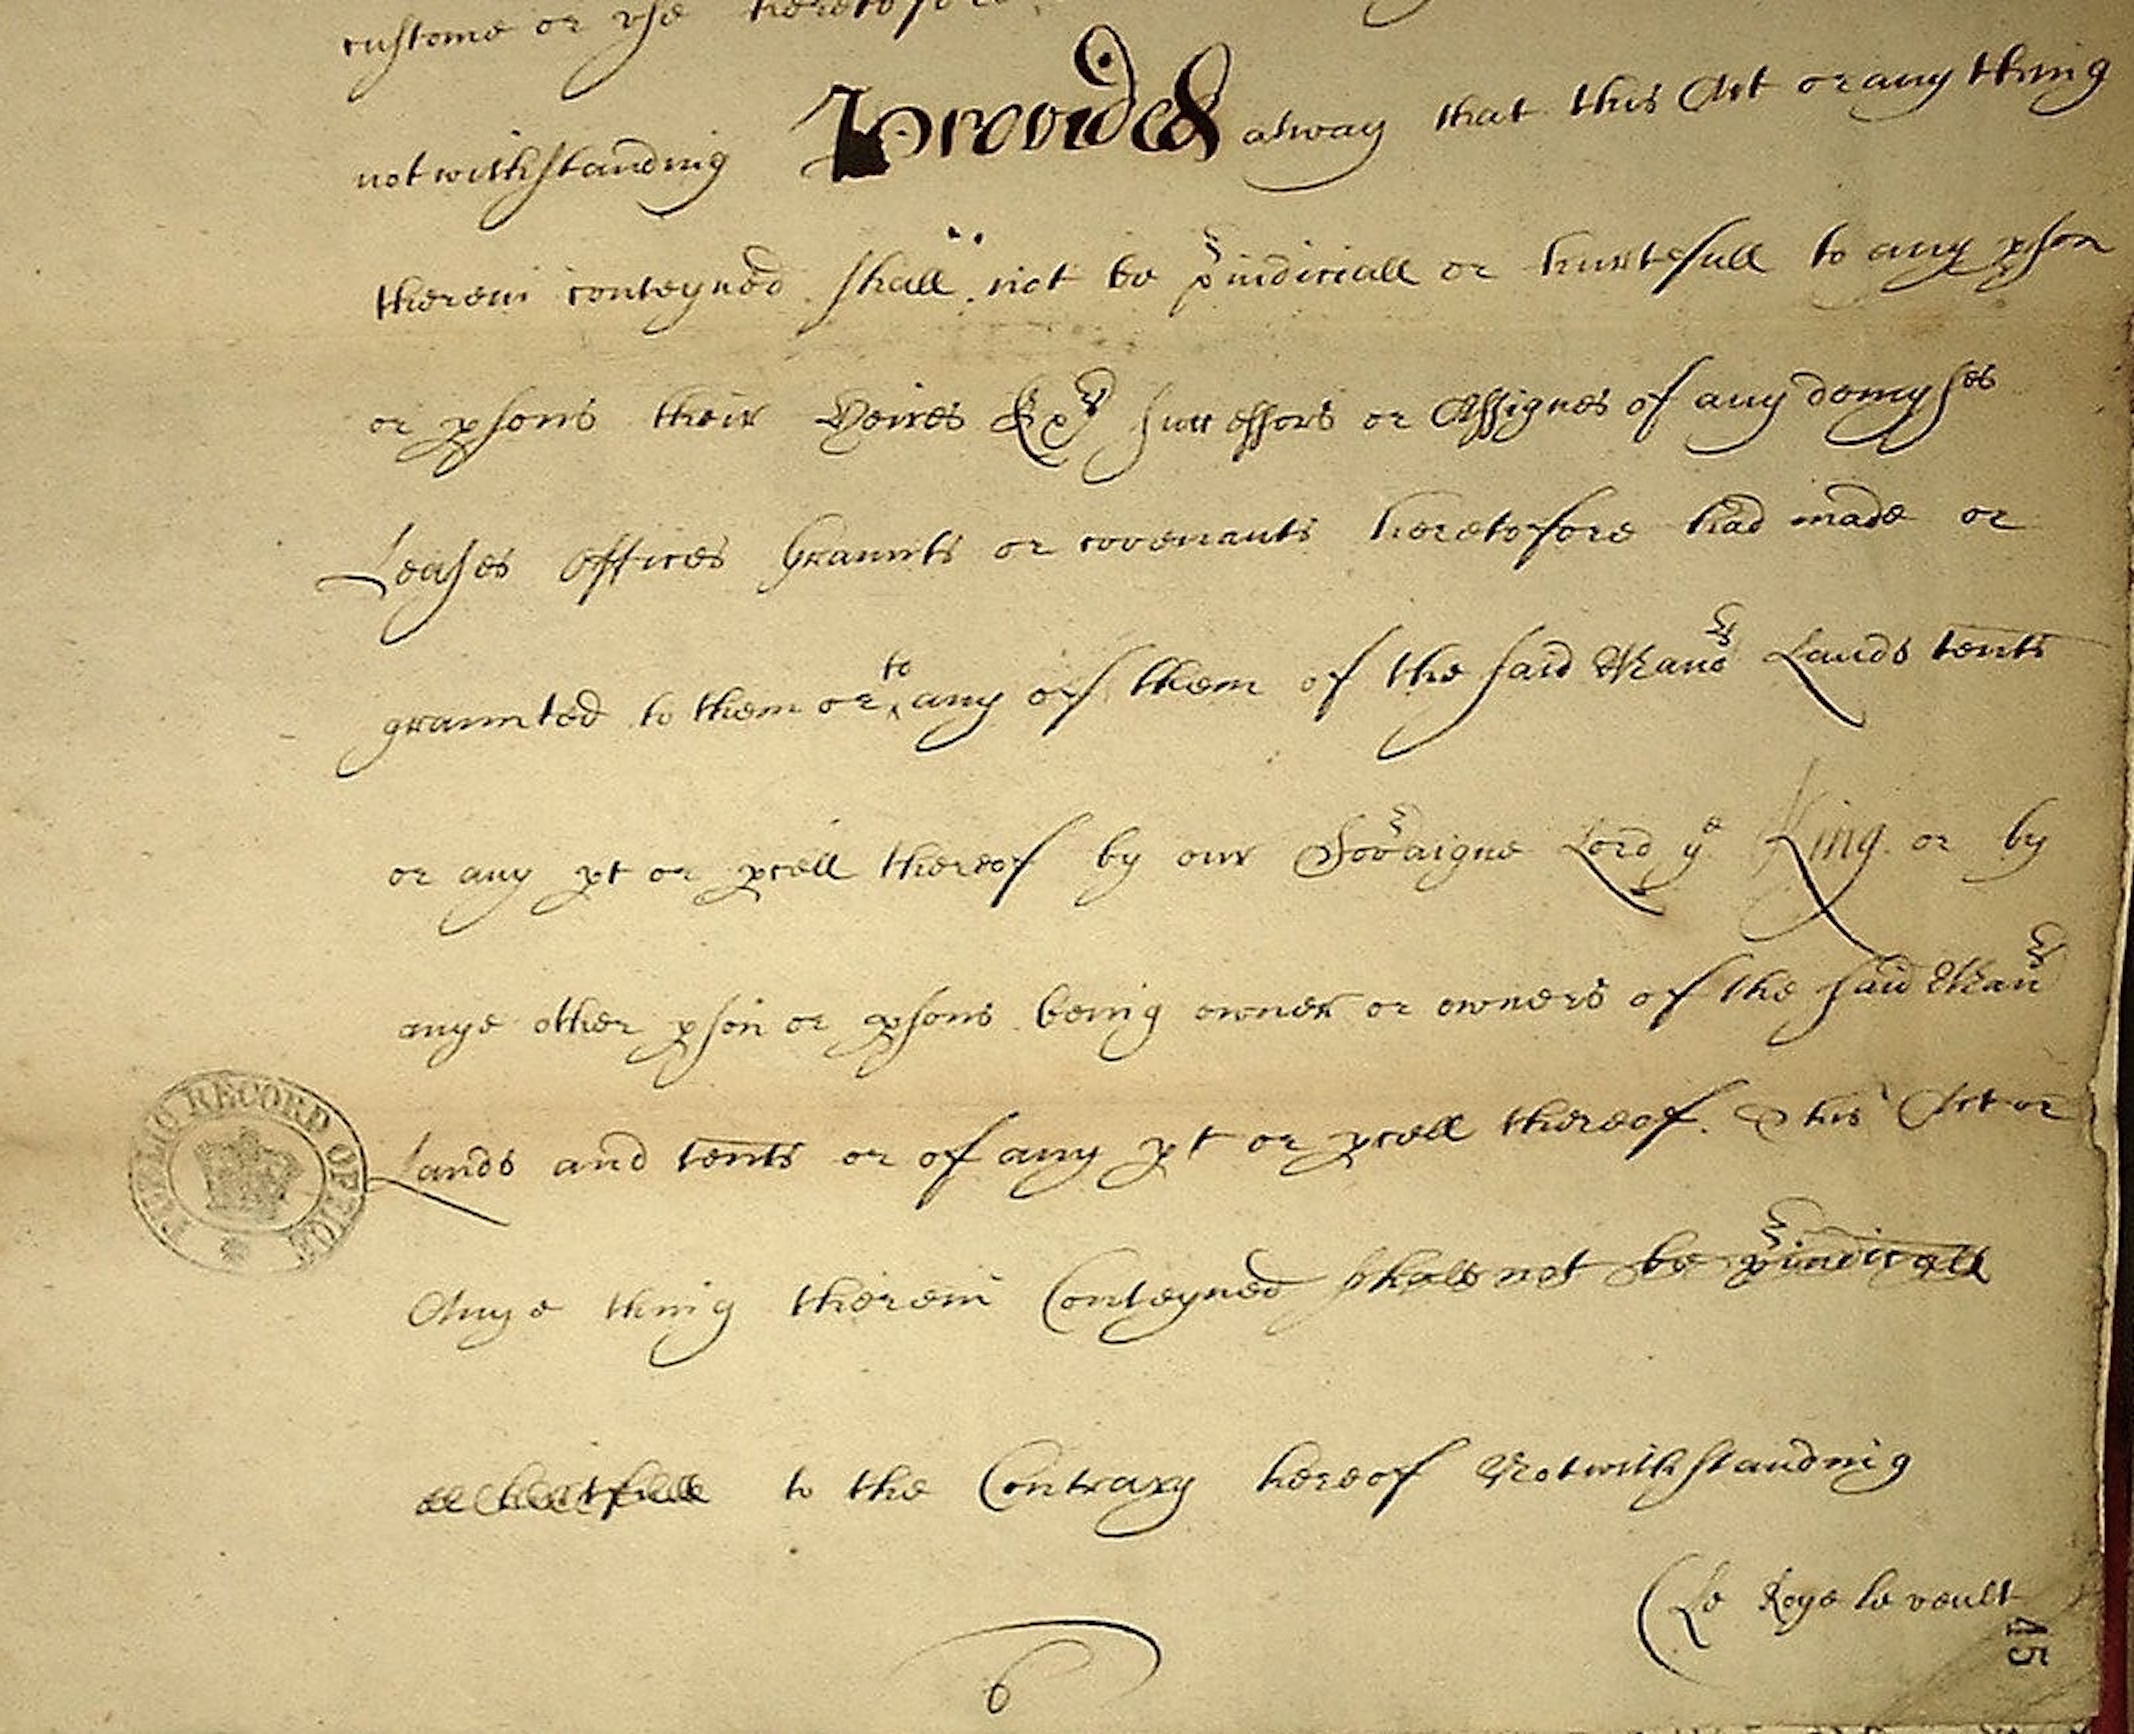 custome or vse heretofore
notwithstanding Provided alway that this Act or any thing
therein conteyned shall not be p̱iudiciall or hurtefull to any p̱son
or p̱sons their Heires Exṟ Successors or Assignes of any demyses
Leases offices Graunts or covenants heretofore had made or
graunted to them or to any of them of the said Manṟs Lands tents
or any p̱t or p̱cell thereof by our Soṽaigne Lord ye King or by
anye other p̱son or p̱sons being owner or owners of the said Manṟ
Lands and tents or of any p̱t or p̱cell thereof. This Act or
Anye thing therein Conteyned shall not be p̱iudicall
or hurtfull to the Contrary hereof Notwithstanding
Le Roye le veult
45
PUBLIC RECORD OFFICE